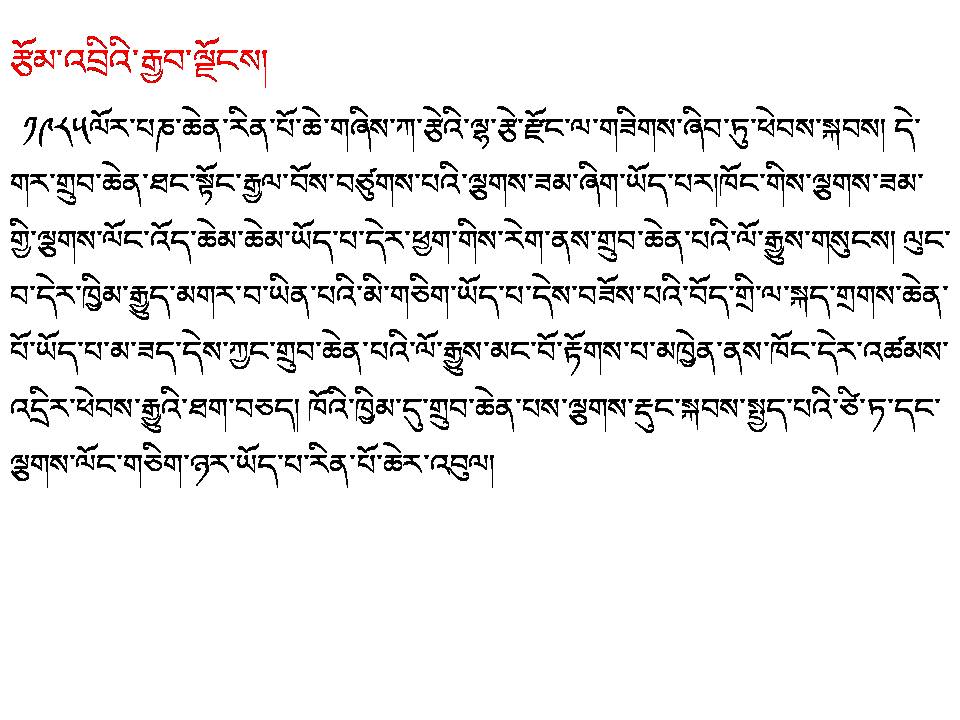 རྩོམ་འབྲིའི་རྒྱབ་ལྗོངས།
༡༩༨༥ལོར་པཎ་ཆེན་རིན་པོ་ཆེ་གཞིས་ཀ་རྩེའི་ལྷ་རྩེ་རྫོང་ལ་གཟིགས་ཞིབ་ཏུ་ཕེབས་སྐབས། དེ་
གར་གྲུབ་ཆེན་ཐང་སྟོང་རྒྱལ་བོས་བཙུགས་པའི་ལྕགས་ཟམ་ཞིག་ཡོད་པར།ཁོང་གིས་ལྕགས་ཟམ་
གྱི་ལྕགས་ལོང་འོད་ཆེམ་ཆེམ་ཡོད་པ་དེར་ཕྱག་གིས་རེག་ནས་གྲུབ་ཆེན་པའི་ལོ་རྒྱུས་གསུངས། ལུང་
བ་དེར་ཁྱིམ་རྒྱུད་མགར་བ་ཡིན་པའི་མི་གཅིག་ཡོད་པ་དེས་བཟོས་པའི་བོད་གྲི་ལ་སྐད་གྲགས་ཆེན་
པོ་ཡོད་པ་མ་ཟད་དེས་ཀྱང་གྲུབ་ཆེན་པའི་ལོ་རྒྱུས་མང་བོ་རྟོགས་པ་མཁྱེན་ནས་ཁོང་དེར་འཚམས་
འདྲིར་ཕེབས་རྒྱུའི་ཐག་བཅད། ཁོའི་ཁྱིམ་དུ་གྲུབ་ཆེན་པས་ལྕགས་རྡུང་སྐབས་སྤྱད་པའི་ཙི་ཏ་དང་
ལྕགས་ལོང་གཅིག་ཉར་ཡོད་པ་རིན་པོ་ཆེར་འབུལ།